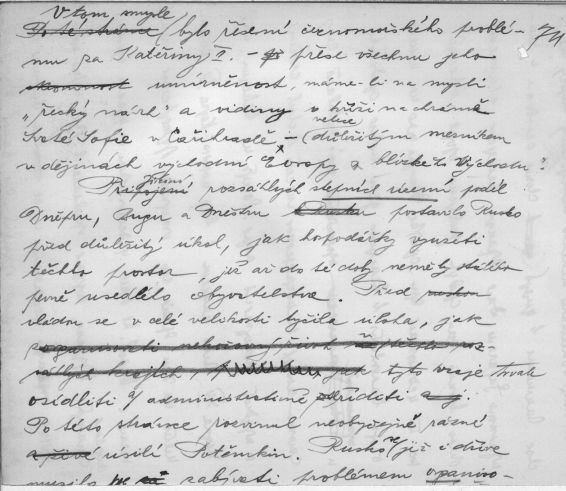 V tom smyslu
Po té stránce bylo řešení černomořského problé- 74
mu za Kateřiny II. – přes všechnu jeho
umírněnost, máme-li na mysli
„řecký návrh“ a vidiny o kříži na chrámě
velice
Svaté Sofie v Cařihradě – důležitým mezníkem
v dějinách východní Evropy a blízkého Východu“.
Připojení rozsáhlých stepních území podél
Dněpru, Bugu a Dněstru postavilo Rusko
před důležitý úkol, jak hospodářsky využíti
těchto prostor, jež až do té doby neměly
pevně usedlého obyvatelstva. Před
vládou se v celé velikosti tyčila úloha, jak
organisovati
krajích, jak tyto kraje trvale
osídliti a administrativně zříditi
Po této stránce rozvinul neobyčejně
úsilí Potěmkin. Rusko již i dříve
musilo se zabývati problémem organiso-